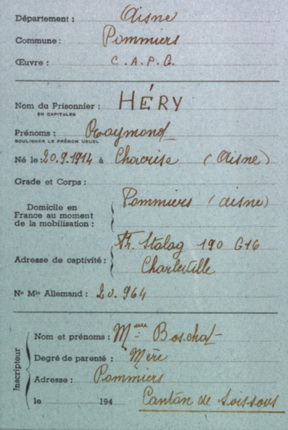 Département : Aisne
Commune : Pommiers
Œuvre : C.A.P.Q.
Nom du Prisonnier : HÉRY
EN CAPITALES
Prénoms : Raymond
SOULIGNER LE PRÉNOM USUEL
Né le 20.9.1914 à Chacrise (Aisne)
Grade et Corps :
Domicile en
France au moment
de la mobilisation :
Pommiers (aisne)
Fr. Stalag 190 G16
Adresse de captivité :
Charleville
No Mle Allemand : 20.964
Inscripteur
Nom et prénoms : Mme Boschat
Degré de parenté : Mère
Adresse : Pommiers
le 194
Canton de Soissons